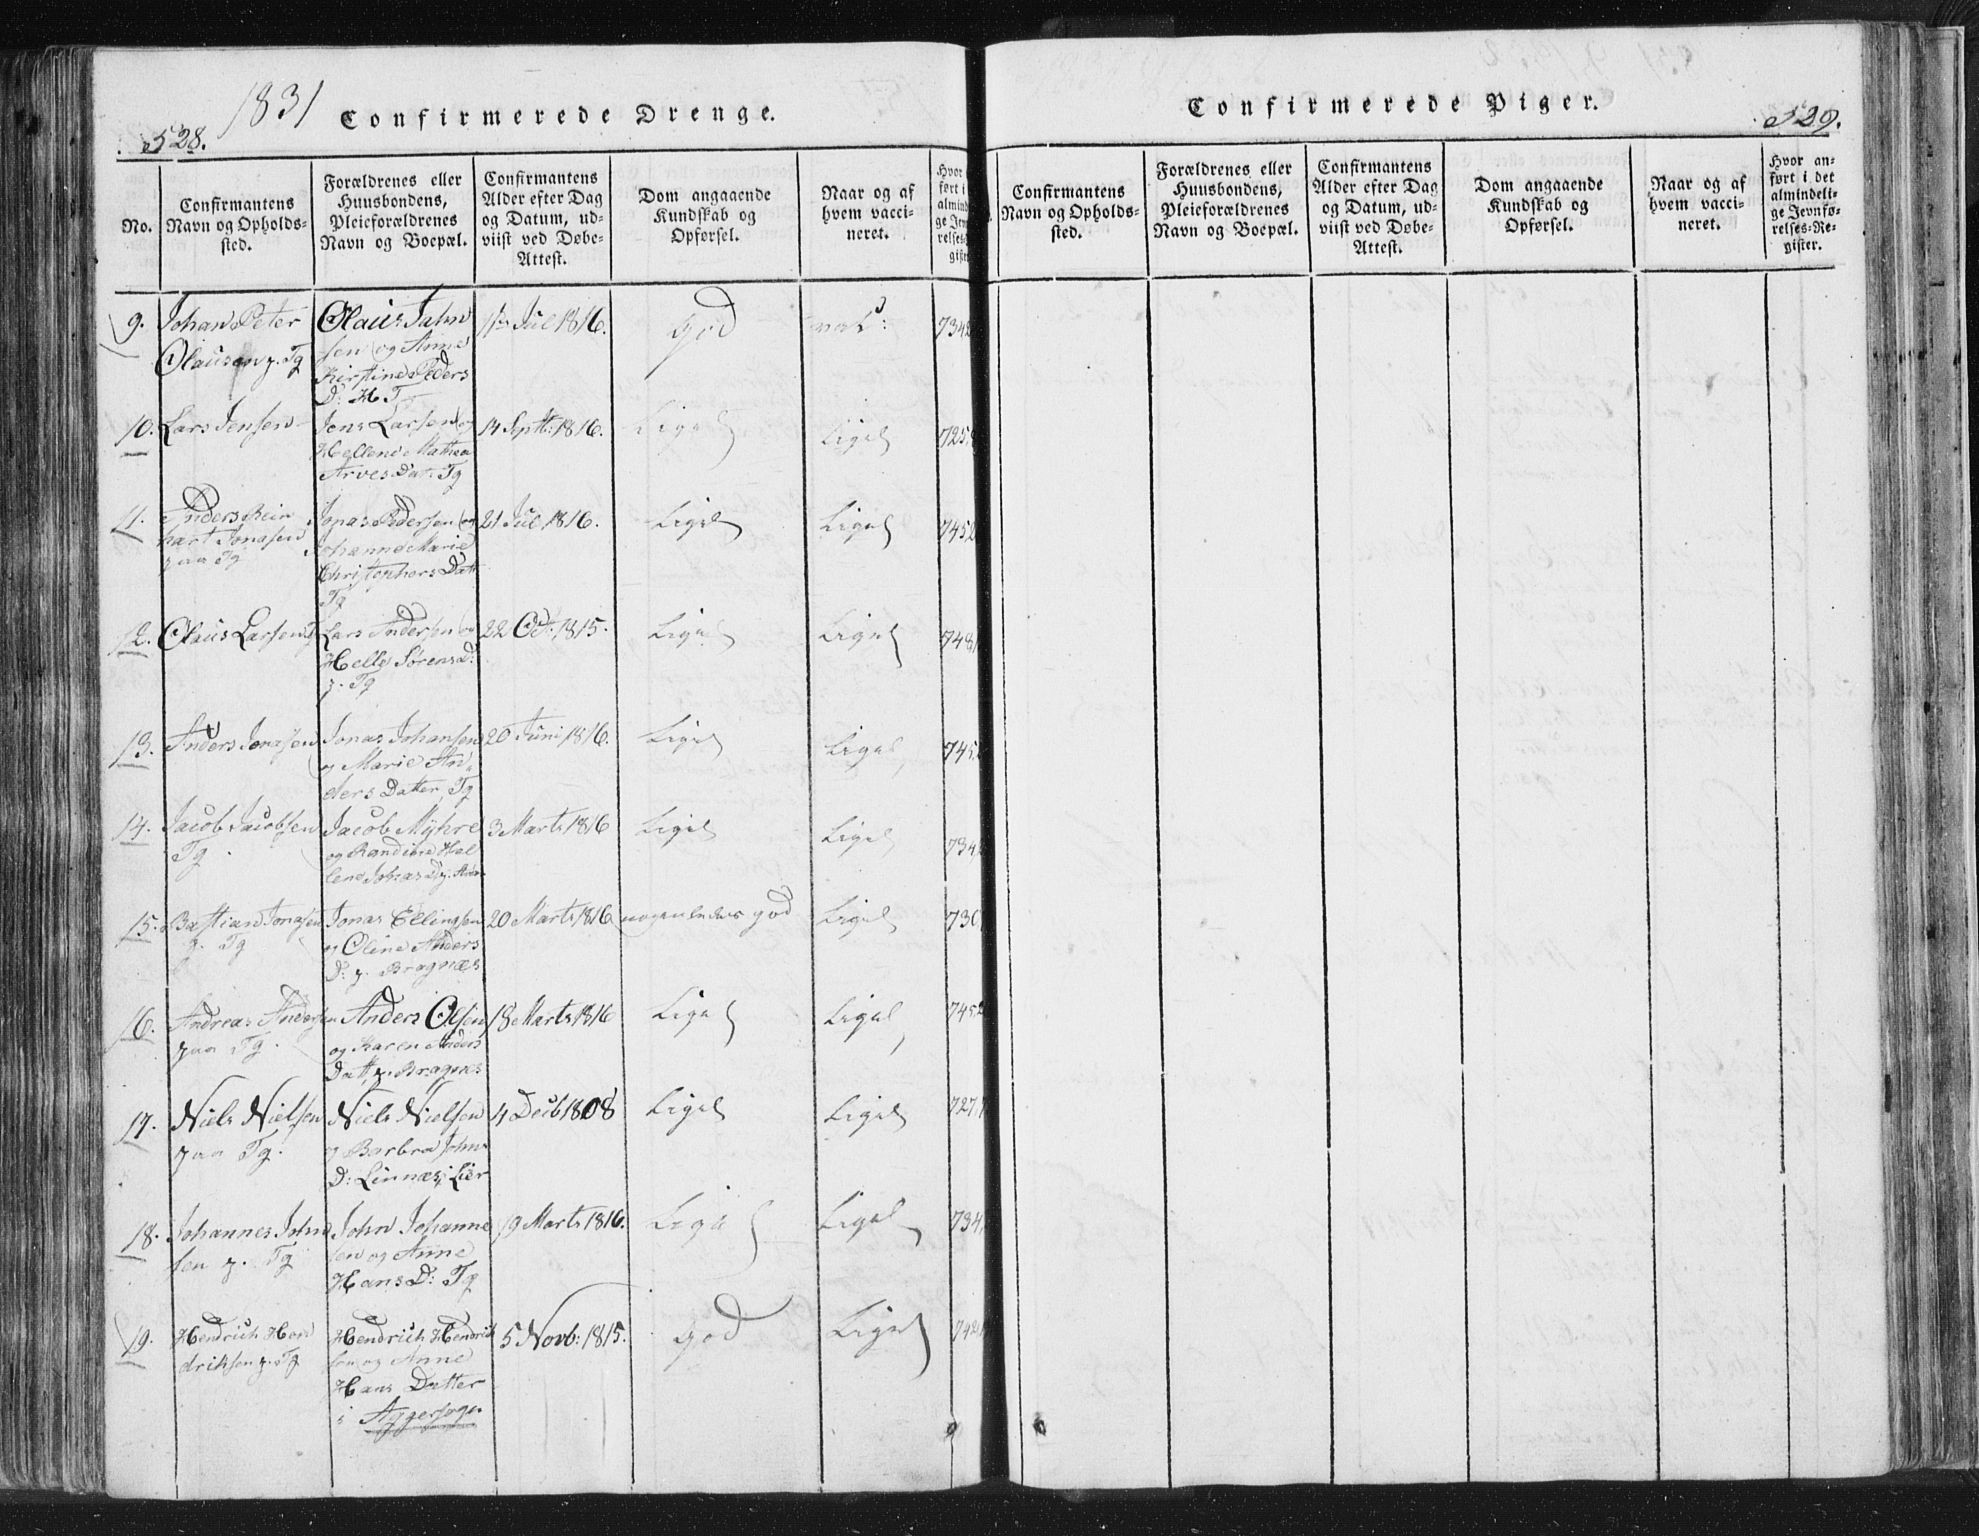 1831
Confirmerede Drenge.
528.
No.
Confirmantens
Navn og Opholds-
sted.
Forældrenes eller
Huusbondens,
Pleieforældrenes
Navn og Boepæl.
Confirmantens
Alder efter Dag
og Datum, ud-
viist ved Døbe-
Attest.
Dom angaaende
Kundskab og
Opførsel.
Naar og af
hvem vacci-
neret.
9. Johan Peter
Olausen z. Tg
Olaus Jahn
sen og Anne
Kirstine Peders
D: H T
Jul 1816.
god
vac:
10. Lars Jensen
Jens Larsen og
Hellene Mathea
Arves Dat. Tg
14 Septb: 1816.
Ligel
Ligel
11. Anders Rein
hart Jonasen
paa Tg
Jonas Pedersen og
Johanne Marie
Christophers Datt
Tg
21 Jul 1816.
Ligel
Ligel
12. Olaus Larsen
Lars Andersen og
Helle Sørens D:
z. Tg
22 Oct: 1815.
Ligel
Ligel
13. Anders Jonasen
Jonas Johansen
og Marie An
ders Datter, Tg
20 Juni 1816.
Ligel
Ligel
14. Jacob Jacobsen
Tg
Jacob Myhre
og Randine Hel
lene
3 Marts 1816
Ligel
Ligel
15. Bastian Jonasen
z. Tg
Jonas Ellingsen
og Oline Anders
D: z. Bragnæs
20 Marts 1816
nogenledes god
Ligel
16. Andreas Andersen
paa Tg.
Anders Olsen
og Karen Anders
Datt. z. Bragnes
18 Marts 1816
Ligel
Ligel
17. Niels Nielsen
paa Tg.
Niels Nielsen
og Barbra John
D: Linnæs i Lier
4 Decb 1808
Ligel
Ligel
18. Johannes John
sen z. Tg
John Johanne
sen og Anne
Hans D: Tg
19 Marts 1816.
Ligel
Ligel
19. Hendrich Hen
driksen z. Tg
Hendrich Hendrich
sen og Anne
Hans Datter
i Aggersogn
5 Novb: 1815.
god
Ligel
Confirmerede Piger.
529.
Confirmantens
Navn og Opholds-
sted.
Forældrenes eller
Huusbondens,
Pleieforældrenes
Navn og Boepæl.
Confirmantens
Alder efter Dag
og Datum, ud-
viist ved Døbe-
Attest.
Dom angaaende
Kundskab og
Opførsel.
Naar og af
hvem vacci-
neret.
Hvor an-
ført i det
almindeli-
ge Jevnfø-
relses-Re-
gister.